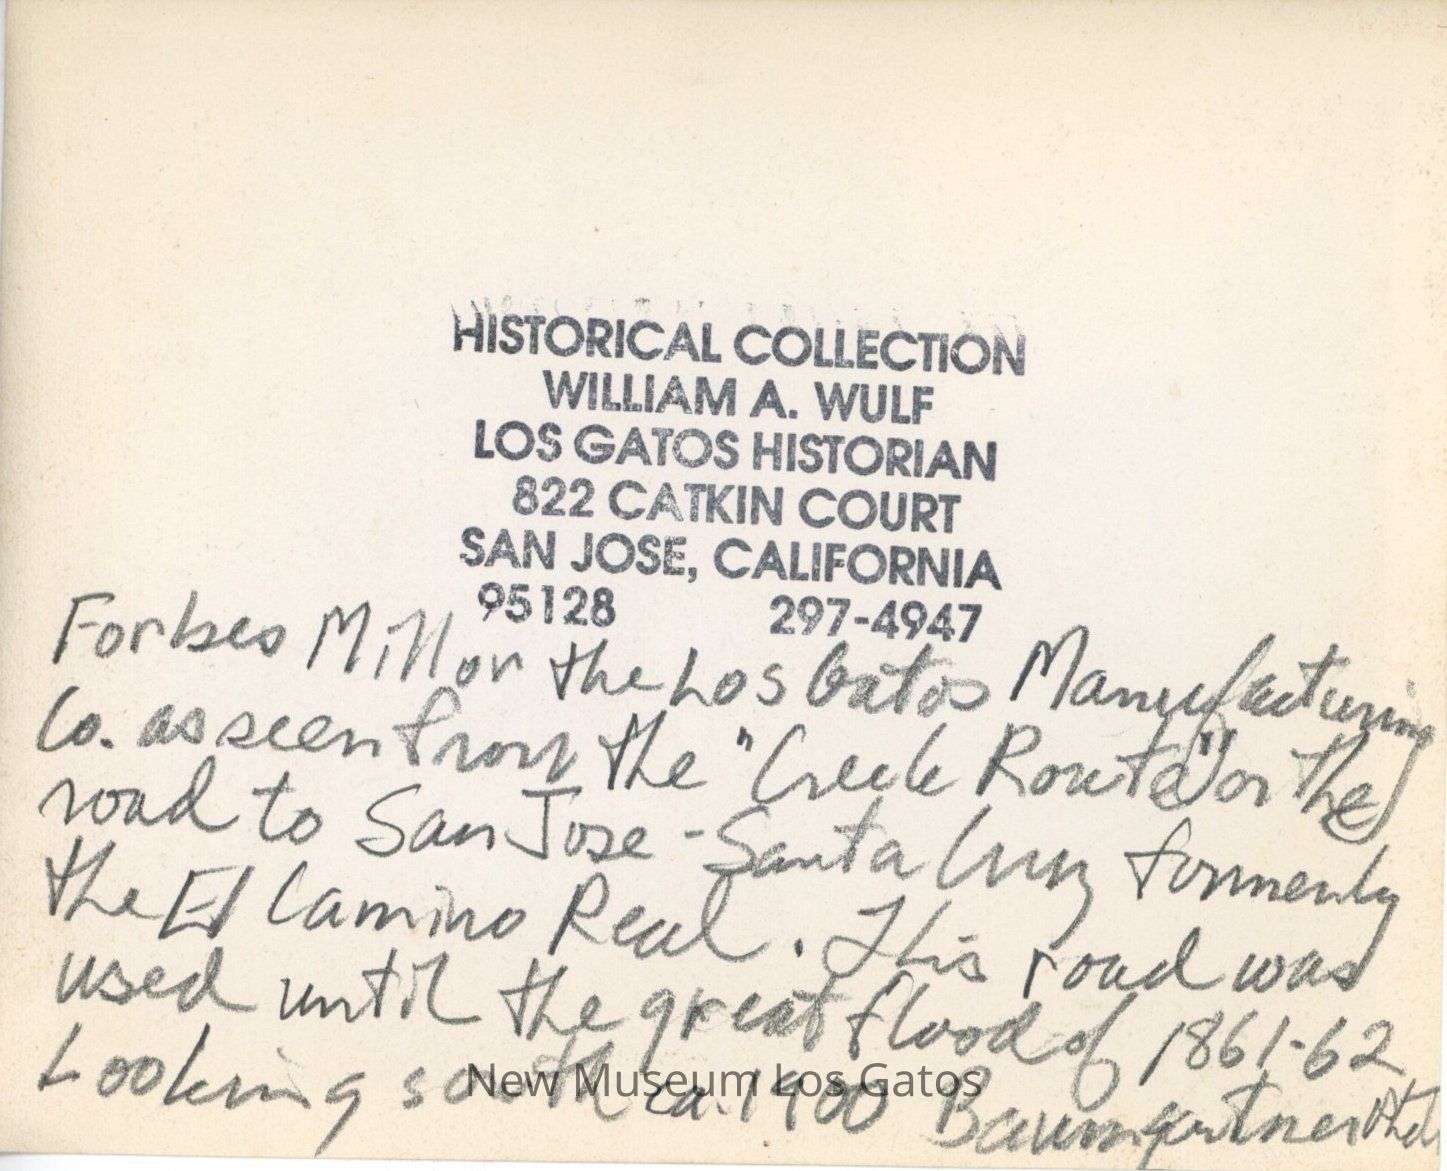 HISTORICAL COLLECTION
WILLIAM A. WULF
LOS GATOS HISTORIAN
822 CATKIN COURT
SAN JOSE, CALIFORNIA
95128 297-4947
Forbes Mill or the Los Gatos Manufacturing
Co. as seen from the "Creek Route" or the
road to San Jose - Santa Cruz formerly
the El Camino Real. This road was
used until the great flood of 1861-62
Looking south ca. 1900 Baumgartner
New Museum Los Gatos